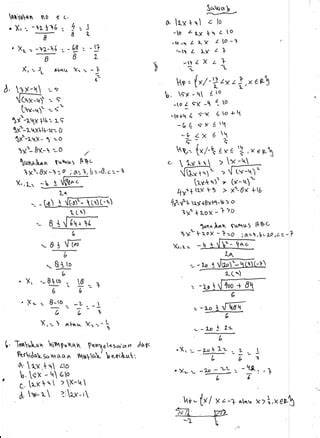 lanjutan no 5 c.
• X₁ = -72+76 = 4 = 1
8 8 2
• X₂ = -72-76 = -68 = -17
8 8 2
X₁ = 1/2 atau X₂ = -
d. |3x-4| = 5
√(3x-4)² = 5
(3x-4)² = 5²
9x²-24x+16 = 25
9x²-24x+16-25=0
9x²-24x-9=0
3x²-8x-3=0
gunakan rumus ABC
3x²-8x-3=0 ; a=3, b=-8, c=-3
X₁.₂ = -b ± √b²-4ac
2a
= -(-8) ± √(-8)²-4(3)(-3)
2(3)
= 8 ± √64+36
6
= 8 ± √100
6
= 8±10
6
• X₁ = 8+10 = 18 = 3
6 6
• X₂ = 8-10 = -2 = -1
6 6 3
X₁ = 3 atau X₂ = -1/3
6. Tentukan himpunan penyelesaian dari
Pertidaksamaan mutlak berikut:
a. |2x+4| <10
b. |5x-4| ≤10
c. |2x+3| >|x-4|
d. |x-2| ≥|2x-1|
Jawab
a. |2x+4| < 10
-10 < 2x+4 < 10
2x
HP = {x/
b. |5x-4| ≤ 10
-10 ≤ 5x-4 ≤ 10
-10+4 ≤ 5x ≤ 10+4
-6 ≤ 5x ≤ 14
-6/5 ≤ x ≤ 14/5
HP = {x/-6/5 ≤ x ≤ 14/5, x∈R}
c. |2x+3| > |x-4|
√(2x+3)² > √(x-4)²
(2x+3)² > (x-4)²
4x²+12x+9 > x²-8x+16
3x²+20x-7>0
gunakan rumus ABC
3x²+20x-7=0 ; a=3, b=20, c=-7
X₁.₂ = -b ± √b²-4ac
2a
= -20 ± √(20)²-4(3)(-7)
2(3)
= -20 ± √400+84
6
= -20 ± √484
6
= -20 ± 22
6
• X₁ = -20+22 = 2 = 1
6 6 3
• X₂ = -20-22 = -42 = -7
6 6
HP = {x/ x<-7 atau x>1/3, x∈R}